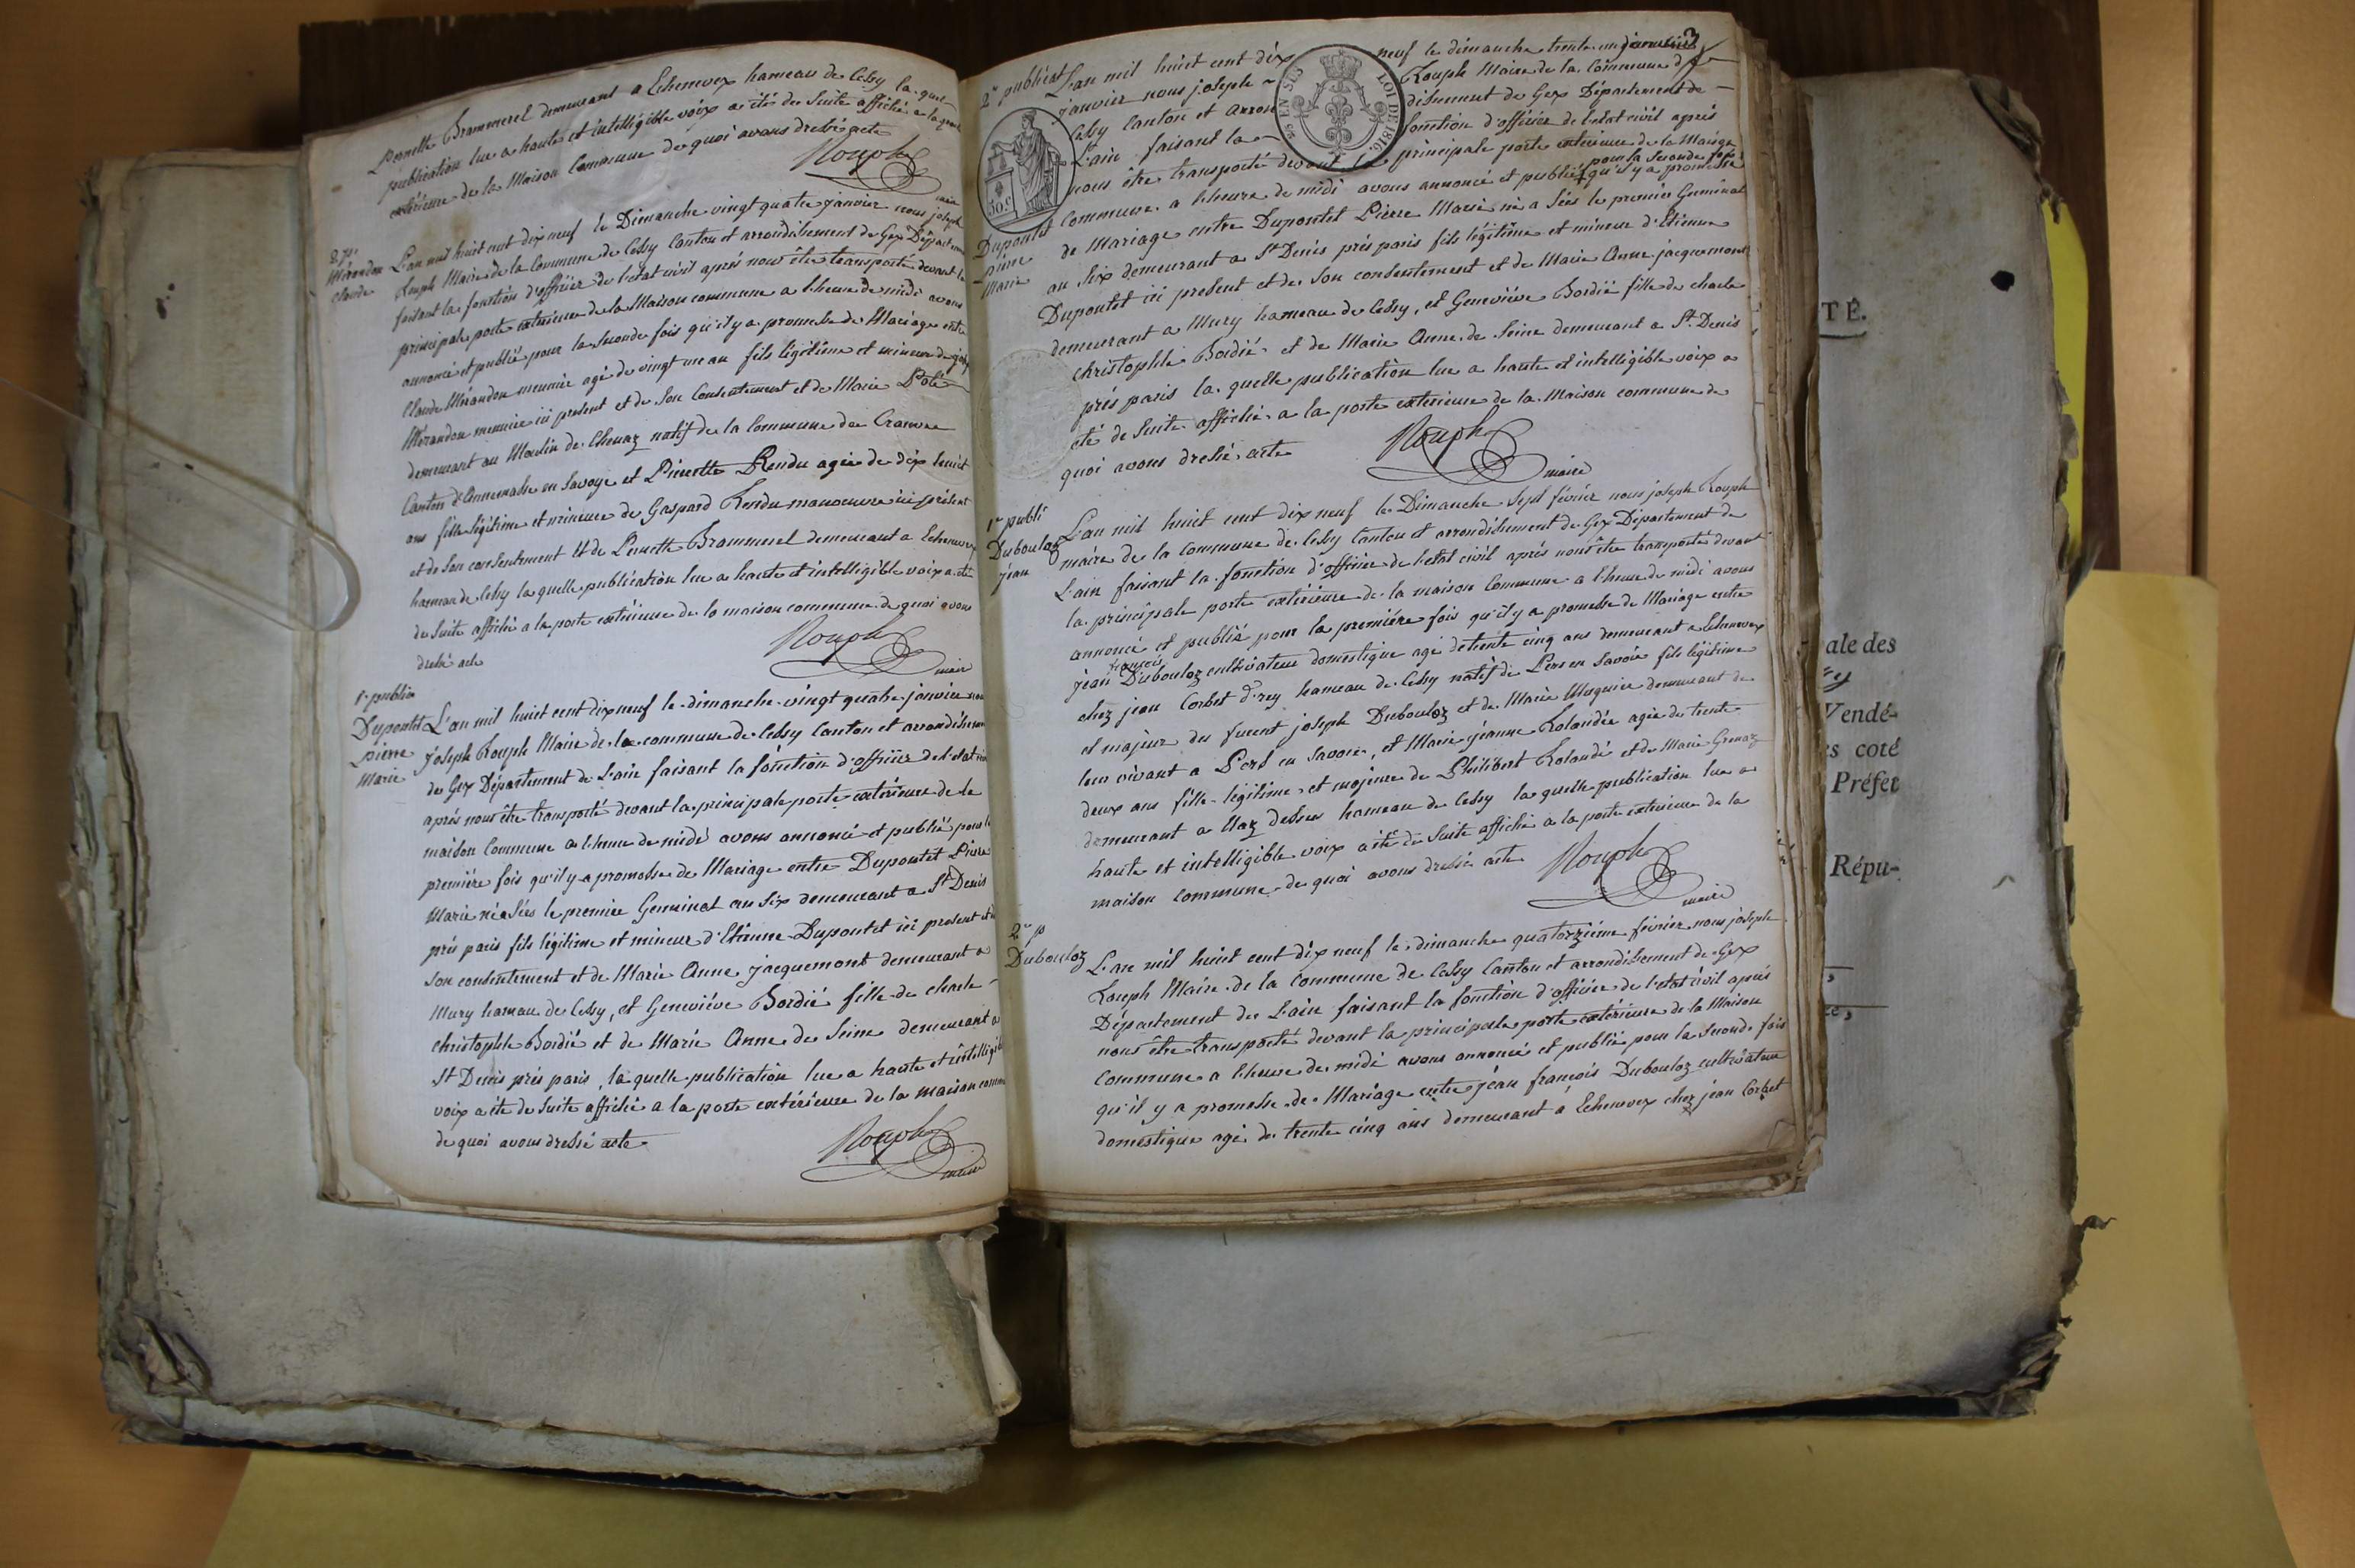 Pernette Brammerel demeurant a Echenevex hameau de Cessy la quelle
publication lue a haute et intelligible voix a étés de Suite affiché a la porte
extérieure de la Maison Commune de quoi avons dressé acte
Rouph
maire
2e p.
Mérandon
claude
L'an mil huit cent dix neuf le Dimanche vingt quatre janvier nous joseph
Rouph Maire de la Commune de Cessy Canton et arrondissement de Gex Département
faisant la fonction d'officier de l'etat civil aprés nous être transporté devant la
principale porte extérieure de la Maison commune a l'heure de midi avons
annoncé et publié pour la seconde fois qu'il y a promesse de Mariage entre
Claude Mérandon meunier agé de vingt un an fils légitime et mineur de
Mérandon meunier ici présent et de Son Consentement et de Marie
demeurant au Moulin de Chenaz natif de la Commune de
Canton d'Annemasse en Savoye et Pernette Rendu agée de dix huit
ans fille légitime et mineure de Gaspard Rendu manoeuvre ici présent
et de Son consentement et de Pernette Brammerel demeurant a Echenevex
hameau de Cessy la quelle publication lue a haute et intelligible voix a été
de Suite affiché a la porte extérieure de la maison commune de quoi avons
dressé acte
Rouph
maire
1re publica
Dupontet
pierre
Marie
L'an mil huit cent dix neuf le dimanche vingt quatre janvier nous
joseph Rouph Maire de la commune de Cessy Canton et arrondissement
de Gex Département de L'ain faisant la fonction d'officier de l'etat civil
aprés nous être transporté devant la principale porte extérieure de la
maison Commune a l'heure de midi avons annoncé et publié pour la
premiére fois qu'il y a promesse de Mariage entre Dupontet Pierre
Marie né a Sées le premier Germinal an Six demeurant a St Denis
prés paris fils légitime et mineur d'Etienne Dupontet ici présent et de
Son consentement et de Marie Anne jacquemont demeurant a
Mury hameau de Cessy, et Geneviéve Bordié fille de charle
christophle Bordié et de Marie Anne de Seine demeurant a
St Denis prés paris, la quelle publication lue a haute et intelligible
voix a été de Suite affiché a la porte extérieure de la maison commune
de quoi avons dressé acte
Rouph
maire
3
2e publicat
Dupontet
pierre
Marie
L'an mil huit cent dix neuf le dimanche trente un janvier
janvier nous joseph Rouph Maire de la Commune de
Cessy Canton et arrondissement de Gex Département de
L'ain faisant la fonction d'officier de l'etat civil aprés
nous être transporté devant la principale porte extérieure de la Maison
pour la seconde fois
Commune a l'heure de midi avons annoncé et publié qu'il y a promesse
de Mariage entre Dupontet Pierre Marie né a Sées le premier Germinal
an Six demeurant a St Denis prés paris fils légitime et mineur d'Etienne
Dupontet ici present et de Son consentement et de Marie Anne jacquemont
demeurant a Mury hameau de Cessy, et Geneviéve Bordié fille de charle
christophle Bordié et de Marie Anne de Seine demeurant a St Denis
prés paris la quelle publication lue a haute et intelligible voix a
été de Suite affiché a la porte exterieure de la Maison commune de
quoi avons dressé acte
Rouph
maire
25 EN SUS
LOI DE 1816.
50c
1re publi
Dubouloz
jean
L'an mil huit cent dix neuf le Dimanche Sept février nous joseph Rouph
maire de la Commune de Cessy Canton et arrondissement de Gex Département de
L'ain faisant la fonction d'officier de l'etat civil aprés nous être transporté devant
la principale porte extérieure de la maison Commune a l'heure de midi avons
annoncé et publié pour la premiére fois qu'il y a promesse de Mariage entre
françois
jean Dubouloz cultivateur domestique agé de trente cinq ans demeurant a Echenevex
chez jean Corbet d'rey hameau de Cessy natif de Pers en Savoie fils légitime
et majeur de furent joseph Dubouloz et de Marie Maguire demeurant de
leur vivant a Pers en Savoie, et Marie jéanne Rolandée agée de trente
deux ans fille légitime et majeure de Philibert Rolandé et de Marie Grenaz
demeurant a Naz dessus hameau de Cessy la quelle publication lue a
haute et intelligible voix a été de Suite affiché a la porte extérieure de la
maison commune de quoi avons dressé acte
Rouph
maire
2e p
Dubouloz
L'an mil huit cent dix neuf le dimanche quatorziéme février nous joseph
Rouph Maire de la Commune de Cessy Canton et arrondissement de Gex
Département de L'ain faisant la fonction d'officier de l'etat civil aprés
nous être transporté devant la principale porte extérieure de la Maison
Commune a l'heure de midi avons annoncé et publié pour la seconde fois
qu'il y a promesse de Mariage entre jéan françois Dubouloz cultivateur
domestique agé de trente cinq ans demeurant a Echenevex chez jean Corbet
TÉ.
ale des
Vendé-
es coté
Préfet
Répu-